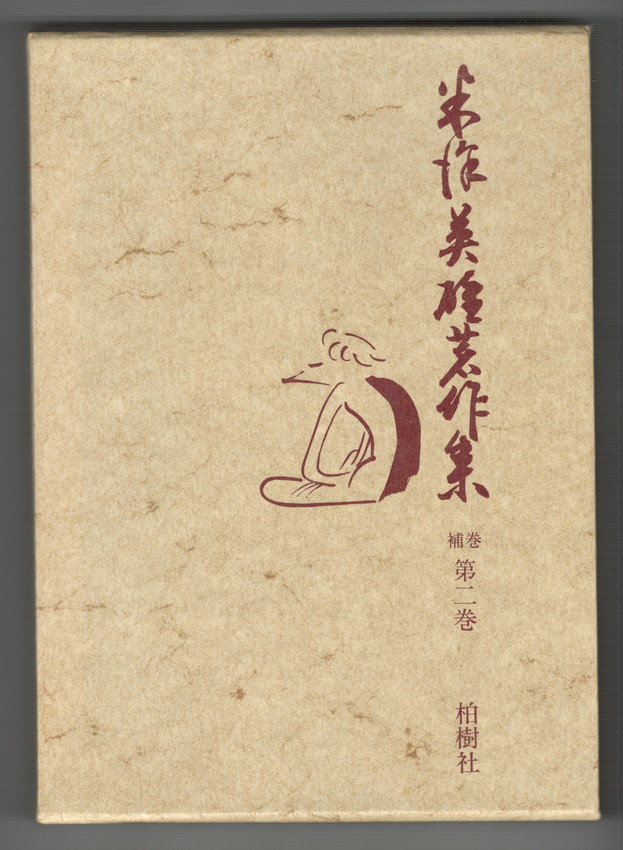 米澤英雄著作集
補巻
第二巻
柏樹社